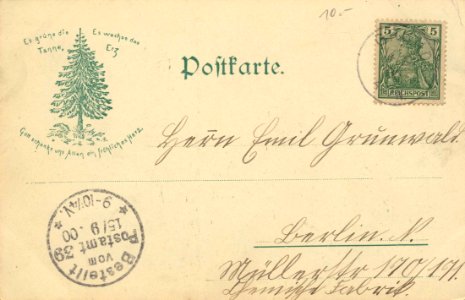 10.-
Es grüne die Tanne,
Es wachse das Erz
Gott schenke uns Allen ein fröhliches Herz.
Postkarte.
5 5
REICHSPOST
Herrn Emil Grunwald
Berlin. N.
Müllerstr 170/171.
Chemische Fabrik
Bestellt
vom
Postamt 39
15/9.00
9-10¼V.